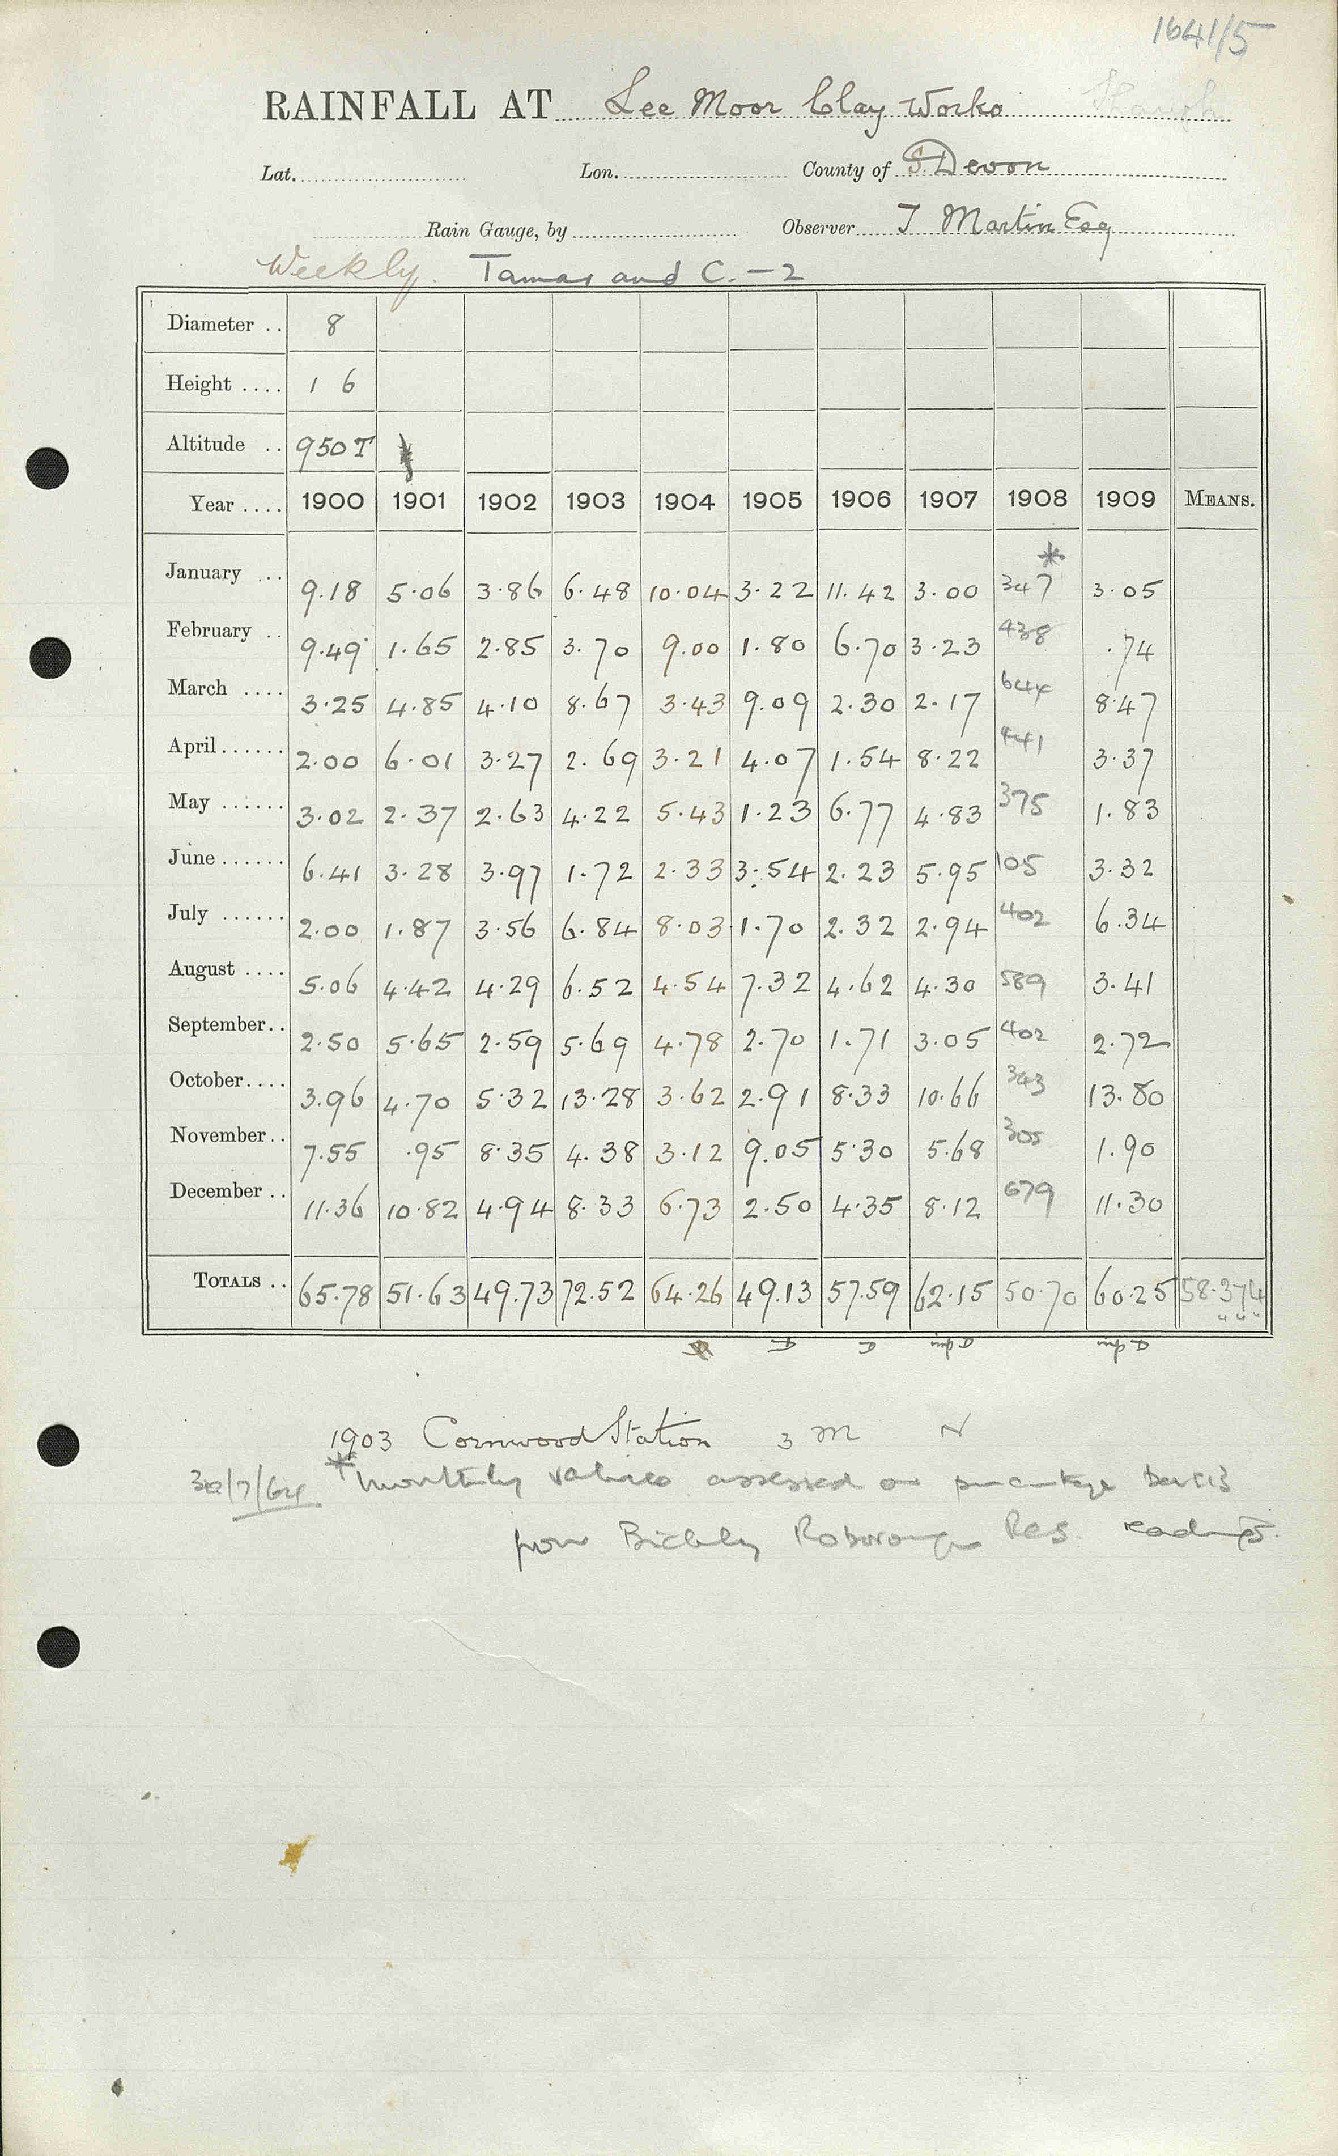 1641/5
RAINFALL AT Lee Moor Clay Works Shaugh
Lat. Lon. County of S. Devon
Rain Gauge, by Observer J Martin Esq
Weekly. Tamar and C. - 2
Diameter .. 8
Height .... 1 6
Altitude .. 950 T
Year .... 1900 1901 1902 1903 1904 1905 1906 1907 1908 1909 MEANS.
*
January ... 9.18 5.06 3.86 6.48 10.04 3.22 11.42 3.00 347 3.05
February .. 9.49 1.65 2.85 3.70 9.00 1.80 6.70 3.23 438 .74
March .... 3.25 4.85 4.10 8.67 3.43 9.09 2.30 2.17 644 8.47
April ...... 2.00 6.01 3.27 2.69 3.21 4.07 1.54 8.22 441 3.37
May ...... 3.02 2.37 2.63 4.22 5.43 1.23 6.77 4.83 375 1.83
June ...... 6.41 3.28 3.97 1.72 2.33 3.54 2.23 5.95 105 3.32
July ...... 2.00 1.87 3.56 6.84 8.03 1.70 2.32 2.94 402 6.34
August .... 5.06 4.42 4.29 6.52 4.54 7.32 4.62 4.30 589 3.41
September.. 2.50 5.65 2.59 5.69 4.78 2.70 1.71 3.05 402 2.72
October.... 3.96 4.70 5.32 13.28 3.62 2.91 8.33 10.66 343 13.80
November.. 7.55 .95 8.35 4.38 3.12 9.05 5.30 5.68 305 1.90
December .. 11.36 10.82 4.94 8.33 6.73 2.50 4.35 8.12 679 11.30
TOTALS .. 65.78 51.63 49.73 72.52 64.26 49.13 57.59 62.15 50.70 60.25 58.374
D D imp D imp D
1903 Cornwood Station 3 M N
30/7/64 * Monthly values assessed on percentage basis
from Bickley Roborough Res. readings.